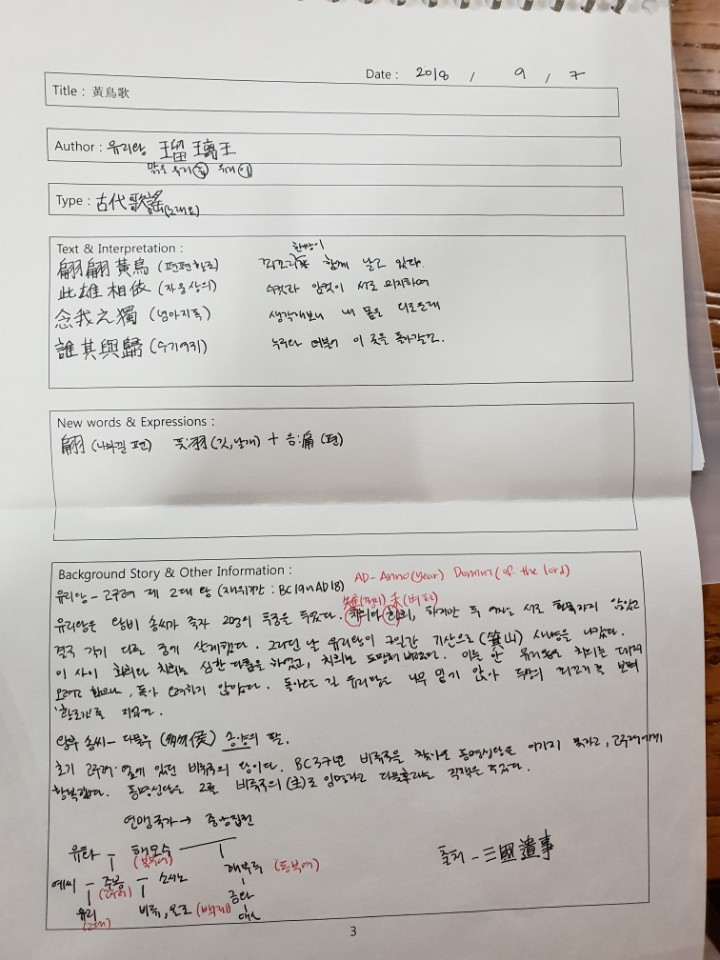 Date : 2018 , 9 , 7
Title : 黃鳥歌
Author : 유리왕 瑠璃王
맑은 유리 유 유리 리
Type : 古代歌謠(노래요)
Text & Interpretation :
翩翩黃鳥 (편편황조) 꾀꼬리 한쌍이 함께 날고 있다.
此雄相依 (자웅상의) 수컷과 암컷이 서로 의지하여
念我之獨 (념아지독) 생각해보니 내 몸은 외로운데
誰其與歸 (수기여귀) 누구와 더불어 이 곳을 돌아갈고.
New words & Expressions :
翩 (나부낄 편) 뜻:羽(깃,날개) + 음:扁(편)
Background Story & Other Information :
AD-Anno(year) Domini(of the lord)
유리왕 - 고구려 제 2대 왕 (재위기간 : BC19~AD18)
雉(꿩치) 禾(벼화)
유리왕은 왕비 송씨가 죽자 2명의 후궁을 두었다. 치희와 화희, 하지만 두 여자는 서로 화목하지 않았고
결국 각기 다른 궁에 살게했다. 그러던 날 유리왕이 7일간 기산으로(箕山) 사냥을 나갔다.
이 사이 화희와 치희는 심한 다툼을 하였고, 치희는 도망쳐버렸다. 이를 안 유리왕은 치희를
않았다. 돌아오는 길 유리왕은 나무 밑에 앉아 꾀꼬리를 보며
'황조가'를 지었다.
왕후 송씨- 다물후 (多勿侯) 송양의 딸.
초기 고구려 옆에 있던 비류국의 왕이다. BC37년 비류국을 찾아온 동명성왕을 이기지 못하고, 고구려에게
항복했다. 동명성왕은 그를 비류국의 (主)로 임명하고 다물후라는 직책을 주었다.
연맹국가 → 중앙집권
유화 - 해모수 (북부여)
해부루 (동부여)
예씨 - 주몽 - 소서노
(고구려)
금와
유리 비류, 온조 (백제) 대소
(2대)
출처 - 三國遺事
3